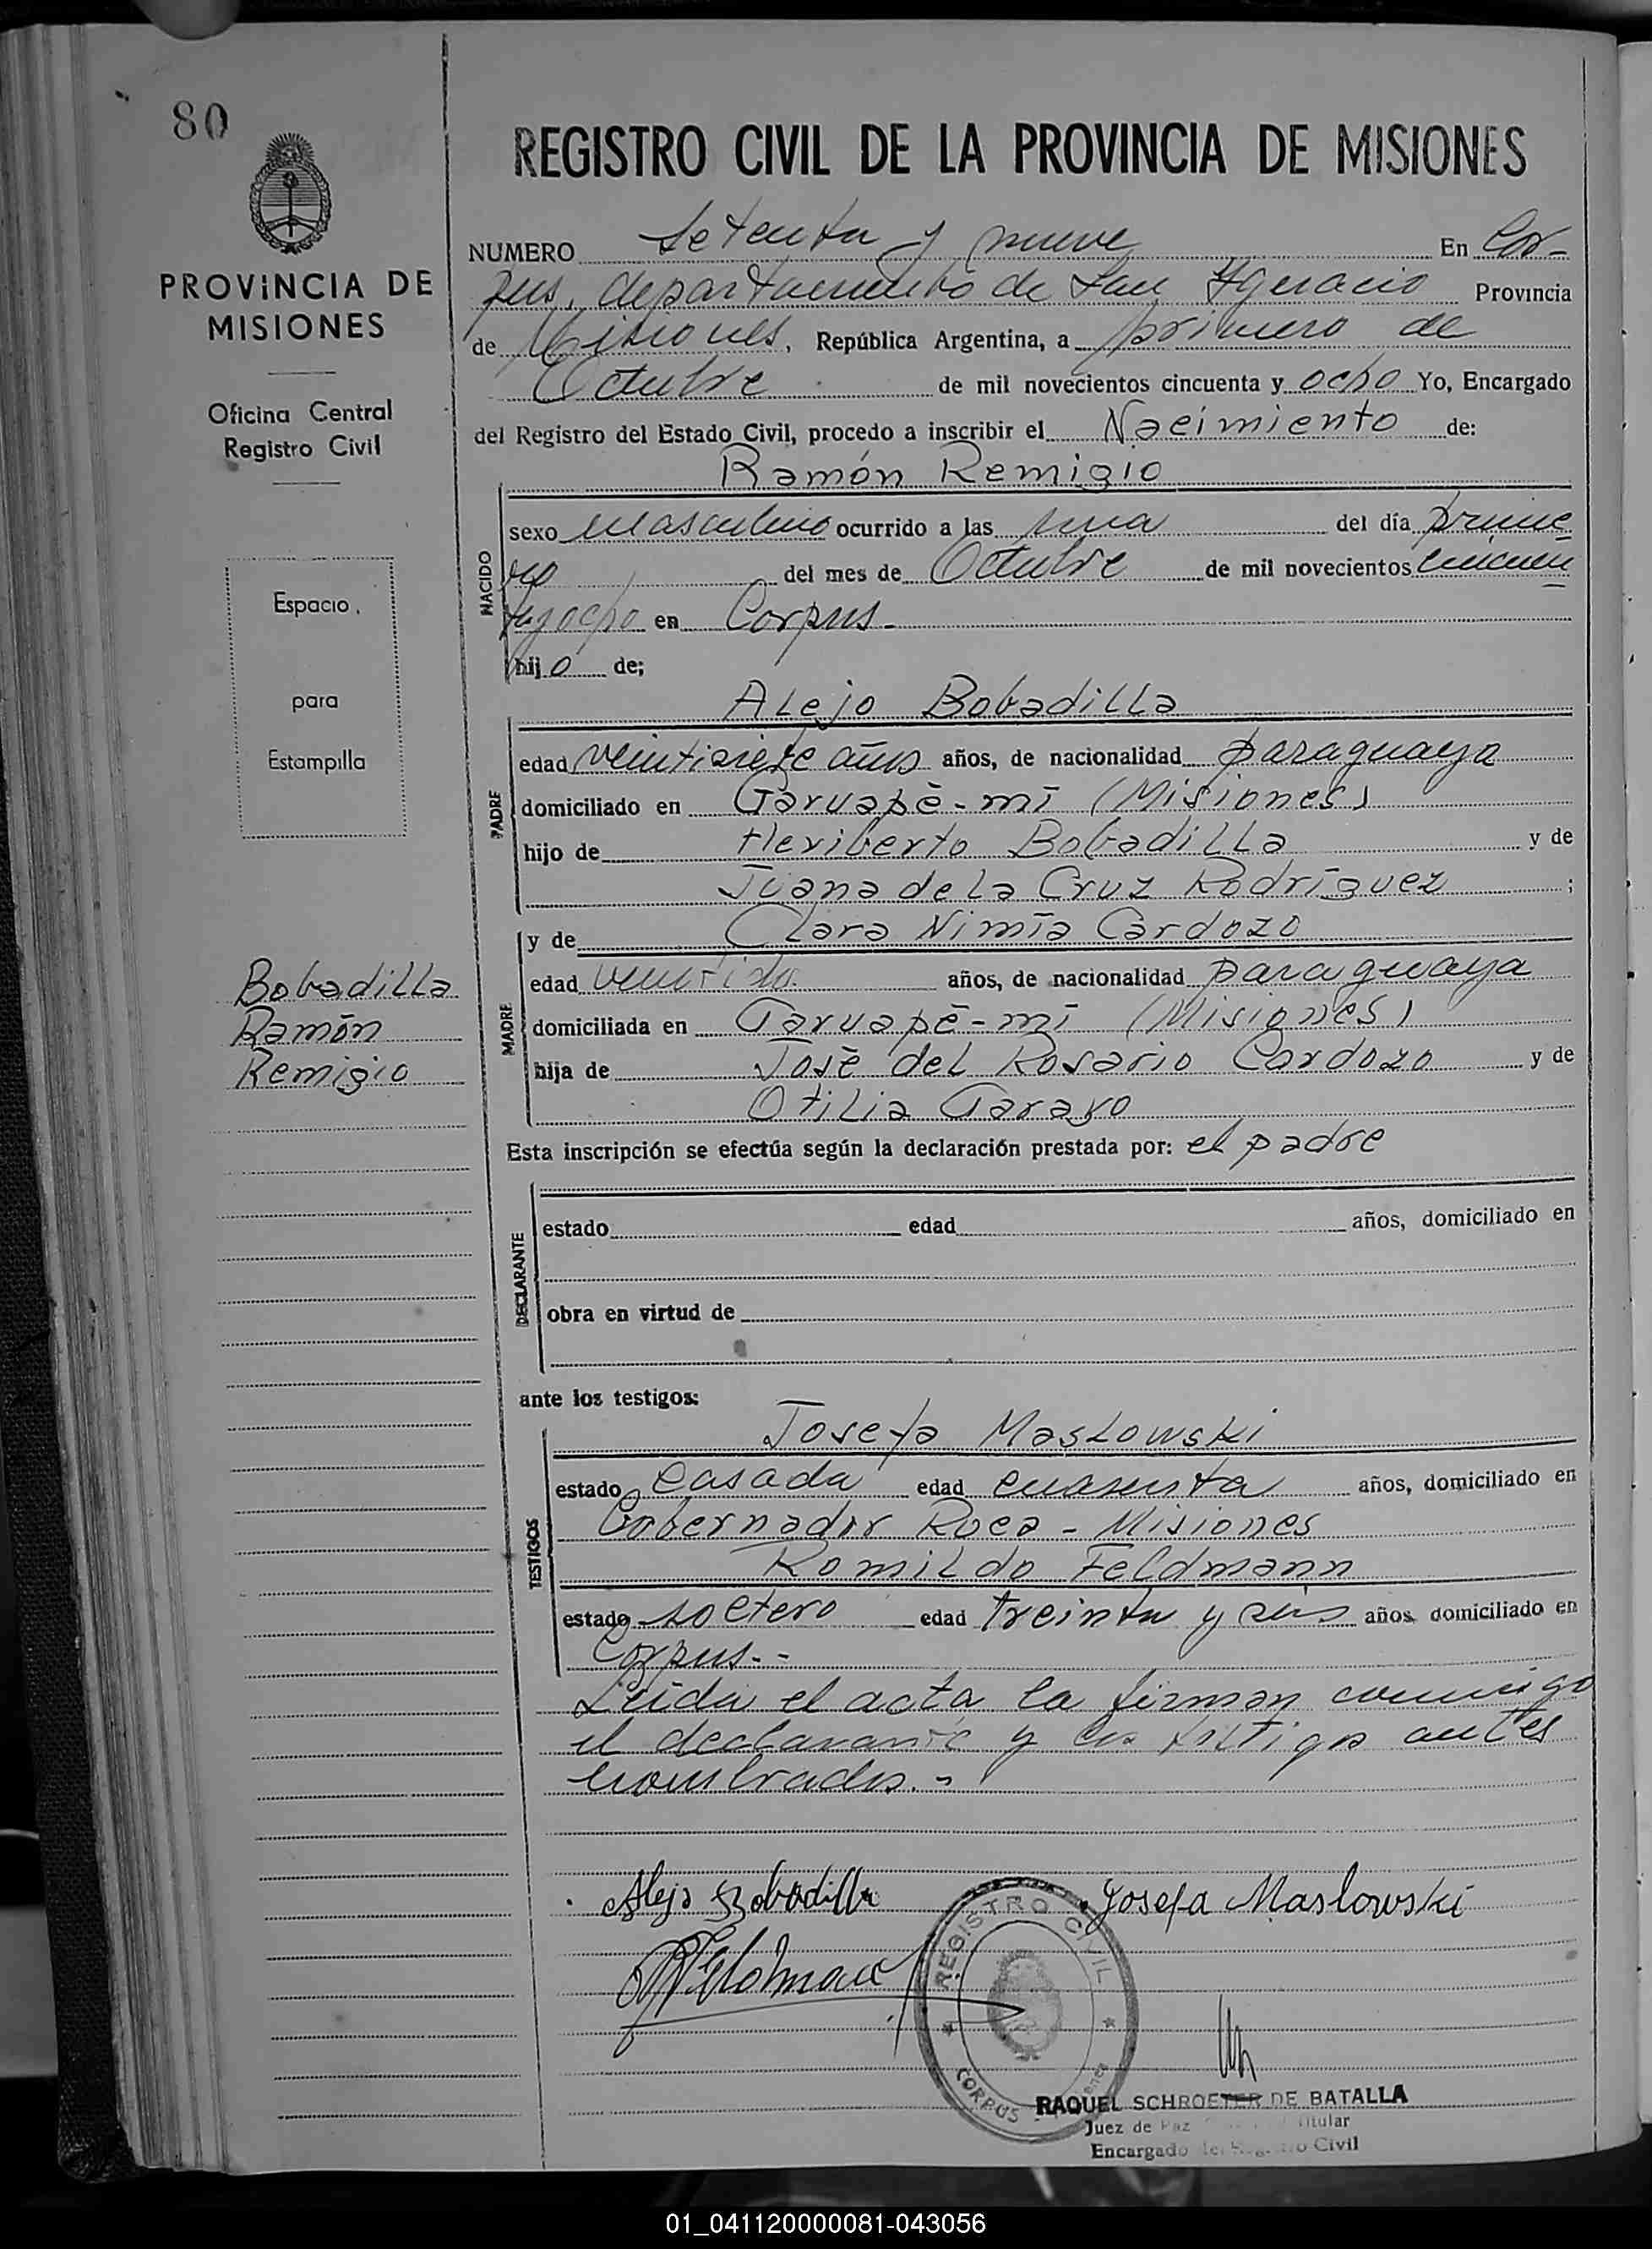 80
REGISTRO CIVIL DE LA PROVINCIA DE MISIONES
PROVINCIA DE
MISIONES
Oficina Central
Registro Civil
Espacio
para
Estampilla
Bobadilla
Ramón
Remigio
NUMERO Setenta y nueve En Cor-
pus, departamento de San Ygnacio Provincia
de Misiones, República Argentina, a primero de
Octubre de mil novecientos cincuenta y ocho Yo, Encargado
del Registro del Estado Civil, procedo a inscribir el Nacimiento de:
Ramón Remigio
NACIDO
sexo masculino ocurrido a las una del día prime
ro del mes de Octubre de mil novecientos cincuen
tayocho en Corpus-
hijo de;
Alejo Bobadilla
PADRE
edad veintisiete años años, de nacionalidad paraguaya
domiciliado en Garuapé-mí (Misiones)
hijo de Heriberto Bobadilla y de
Juana de la Cruz Rodríguez ;
MADRE
y de Clara Nimia Cardozo
edad años, de nacionalidad paraguaya
domiciliada en Garuapé-mí (Misiones)
hija de José del Rosario Cardozo y de
Otilia Garayo
Esta inscripción se efectúa según la declaración prestada por: el padre
DECLARANTE
estado edad años, domiciliado en
obra en virtud de
ante los testigos:
TESTIGOS
Josefa Maslowski
estado Casada edad cuarenta años, domiciliado en
Gobernador Roca - Misiones
Romildo Feldmann
estado soltero edad treinta y seis años domiciliado en
Corpus.--
Leída el acta la firman conmigo
el declarante y los testigos antes
nombrados.-
Alejo Bobadilla Josefa Maslowski
REGISTRO CIVIL
CORPUS
RAQUEL SCHROETER DE BATALLA
Juez de Paz Titular
Encargado del Registro Civil
01_041120000081-043056